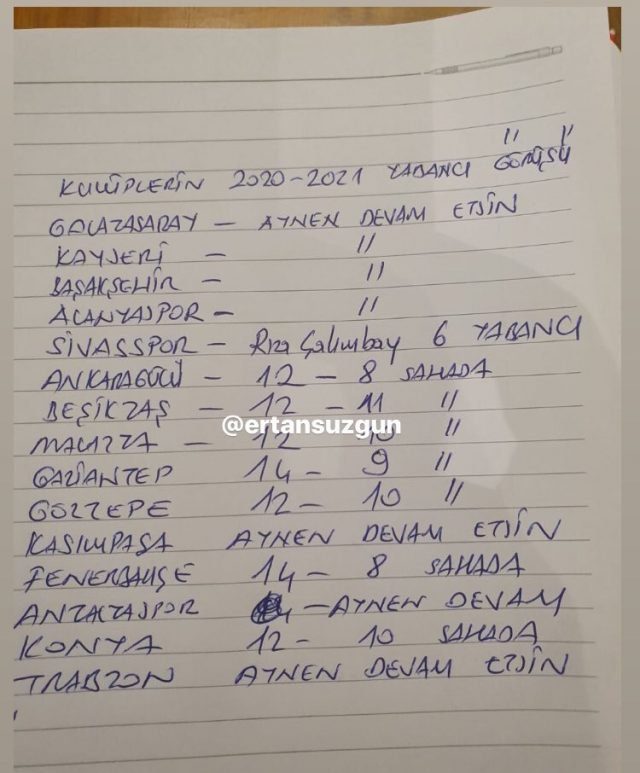 KULÜPLERİN 2020-2021 YABANCI GÖRÜŞÜ
" "
GALATASARAY - AYNEN DEVAM ETSİN
KAYSERİ - "
BAŞAKŞEHİR - "
ALANYASPOR - "
SİVASSPOR - Rıza Çalımbay 6 YABANCI
ANKARAGÜCÜ - 12 - 8 SAHADA
BEŞİKTAŞ - 12 - 11 "
@ertansuzgun
MALATYA - 12 10 "
GAZİANTEP 14 - 9 "
GÖZTEPE 12 - 10 "
KASIMPAŞA AYNEN DEVAM ETSİN
FENERBAHÇE 14 - 8 SAHADA
ANTALYASPOR - AYNEN DEVAM
KONYA 12 - 10 SAHADA
TRABZON AYNEN DEVAM ETSİN